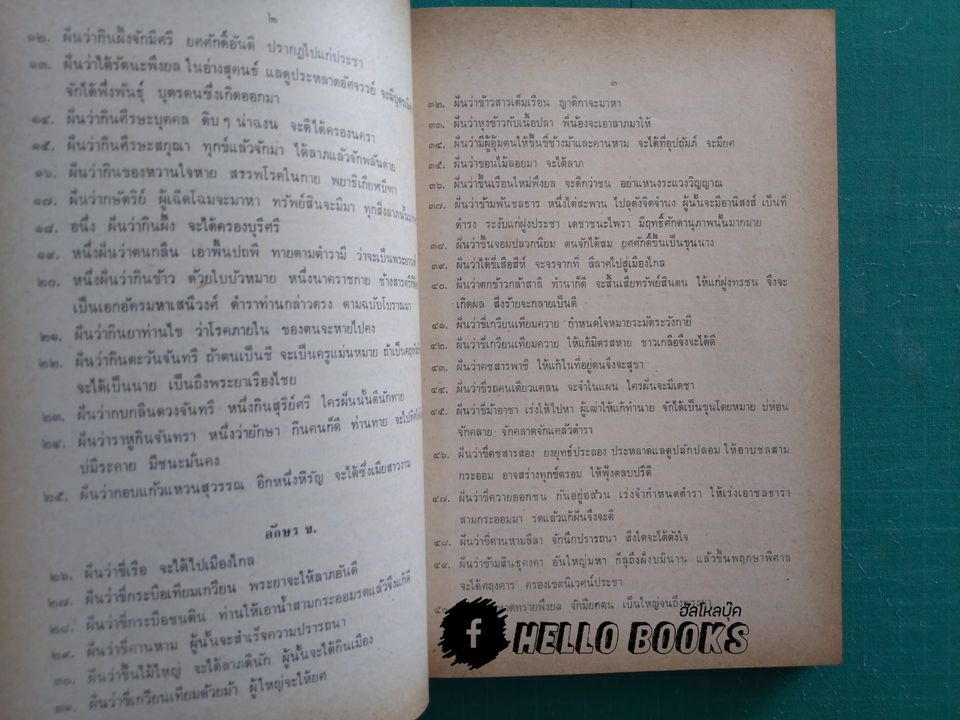 ๒
๑๒. ฝันว่ากินผึ้งจักมีศรี ยศศักดิ์อันดี ปรากฏไปแก่ประชา
๑๓. ฝันว่าได้รัตนะพึงยล ในอ่างสุคนธ์ แลดูประหลาดอัศจรรย์ จะมีบุตร
จักได้พึ่งพันธุ์ บุตรตนซึ่งเกิดออกมา
๑๔. ฝันว่ากินศีรษะบุคคล ดิบ ๆ น่าฉงน จะดีได้ครองนครา
๑๕. ฝันว่ากินศีรษะสกุณา ทุกข์แล้วจักมา ได้ลาภแล้วจักพลันตาย
๑๖. ฝันว่ากินของหวานใจหาย สรรพโรคในกาย พยาธิเกียทบีฑา
๑๗. ฝันว่ากษัตริย์ ผู้เฉิดโฉมจะมาหา ทรัพย์สินจะมีมา ทุกสิ่งลาภนั้น
๑๘. อนึ่ง ฝันว่ากินผึ้ง จะได้ครองบุรีศรี
๑๙. หนึ่งฝันว่าตนกลืน เอาพื้นปถพี ทายตามตำรามี ว่าจะเป็นพระยา
๒๐. หนึ่งฝันว่ากินข้าว ด้วยใบบัวหมาย หนึ่งนาคราชกาย ช้างสาร
เป็นเอกอัครมหาเสนีวงศ์ ตำราท่านกล่าวตรง ตามฉบับโบราณมา
๒๑. ฝันว่ากินยาท่านไข ว่าโรคภายใน ของตนจะหายไปคง
๒๒. ฝันว่ากินตะวันจันทรี ถ้าตนเป็นชี จะเป็นครูแม่นหมาย ถ้าเป็น
จะได้เป็นนาย เป็นถึงพระยาเรืองไชย
๒๓. ฝันว่ากบกลืนดวงจันทรี หนึ่งกินสุริย์ศรี ใครฝันนั้นดีนักทาย
๒๔. ฝันว่าราหูกินจันทรา หนึ่งว่ายักษา กินคนก็ดี ท่านทาย จะไป
บ่มีระคาย มีชนะมั่นคง
๒๕. ฝันว่ากอบแก้วแหวนสุวรรณ อีกหนึ่งหิรัญ จะได้ซึ่งเมียสาวงาม
อักษร ข.
๒๖. ฝันว่าขี่เรือ จะได้ไปเมืองไกล
๒๗. ฝันว่าขี่กระบือเทียมเกวียน พระยาจะให้ลาภอันดี
๒๘. ฝันว่าขี่กระบือชนดิน ท่านให้เอาน้ำสามกระออมรดแล้วจึงแก้ดี
๒๙. ฝันว่าขี่คานหาม ผู้นั้นจะสำเร็จความปรารถนา
๓๐. ฝันว่าขึ้นไม้ใหญ่ จะได้ลาภดีนัก ผู้นั้นจะได้กินเมือง
๓๑. ฝันว่าขี่เกวียนเทียมด้วยม้า ผู้ใหญ่จะให้ยศ
๓
๓๒. ฝันว่าข้าวสารเต็มเรือน ญาติกาจะมาหา
๓๓. ฝันว่าหุงข้าวกับเนื้อปลา พี่น้องจะเอาลาภมาให้
๓๔. ฝันว่ามีผู้อุ้มตนให้ขึ้นขี่ช้างม้าและคานหาม จะได้ที่อุปถัมภ์ จะมียศ
๓๕. ฝันว่าขอนไม้ลอยมา จะได้ลาภ
๓๖. ฝันว่าขึ้นเรือนใหม่พึงยล จะดีกว่าชน อย่าแหนงระแวงวิญญาณ
๓๗. ฝันว่าข้ามพ้นชลธาร หนึ่งไต่สะพาน ไปลุดังจิตจำนง ผู้นั้นจะมีอานิสงส์ เป็นที่
ดำรง ระงับแก่ฝูงประชา เดชาชนะไพรา มีฤทธิ์ศักดานุภาพนั้นมากมาย
๓๘. ฝันว่าขึ้นจอมปลวกนิยม ตนจักได้สม ยศศักดิ์ขึ้นเป็นขุนนาง
๓๙. ฝันว่าได้ขี่เสือสีห์ จะจรจากที่ ลีลาศไปสู่เมืองไกล
๔๐. ฝันว่าตกข้าวกล้าสาลี ทำนาก็ดี จะสิ้นเสียทรัพย์สินตน ให้แก่ฝูงทรชน จึงจะ
เกิดผล สิ่งร้ายจะกลายเป็นดี
๔๑. ฝันว่าขี่เกวียนเทียมควาย กำหนดใจหมายระมัดระวังกายี
๔๒. ฝันว่าขี่เกวียนเทียมควาย ให้แก้มิตรสหาย ชาวเกลอจึงจะได้ดี
๔๓. ฝันว่าคชสารพาชี ให้แก้ในที่อยู่ตนจึงจะสุขา
๔๔. ฝันว่าขี่รถคนเดียวแคลน จะจำในแผน ใครฝันจะมีเดชา
๔๕. ฝันว่าขี่ม้าอาชา เร่งให้ไปหา ผู้เฒ่าให้แก้ทำนาย จักได้เป็นขุนโดยหมาย บ่ห่อน
จักคลาย จักคลาดจักแคล้วตำรา
๔๖. ฝันว่าขี่คชสารสอง ยงยุทธ์ประลอง ประหลาดแลดูปลักปลอม ให้อาบชลสาม
กระออม อาจสร่างทุกข์ตรอม ให้ฟุ้งตลบปรีดิ์
๔๗. ฝันว่าขี่ควายออกชน กันอยู่อสวน เร่งจำกำหนดตำรา ให้เร่งเอาชลธารา
สามกระออมมา รดแล้วแก้ฝันจึงจะดี
๔๘. ฝันว่าขี่คานหามลีลา จักนึกปรารถนา สิ่งใดจะได้ดังใจ
๔๙. ฝันว่าข้ามสินธุคงคา อันใหญ่มหา ก็ลุถึงฝั่งบมินาน แล้วขึ้นพฤกษาพิศาล
จะได้ศฤงคาร ครองเขตนิเวศน์ประชา
หาดทรายพึงยล จักมียศตน เป็นใหญ่จนถึงพระยา
ฮัลโหลบุ๊ค
HELLO BOOKS